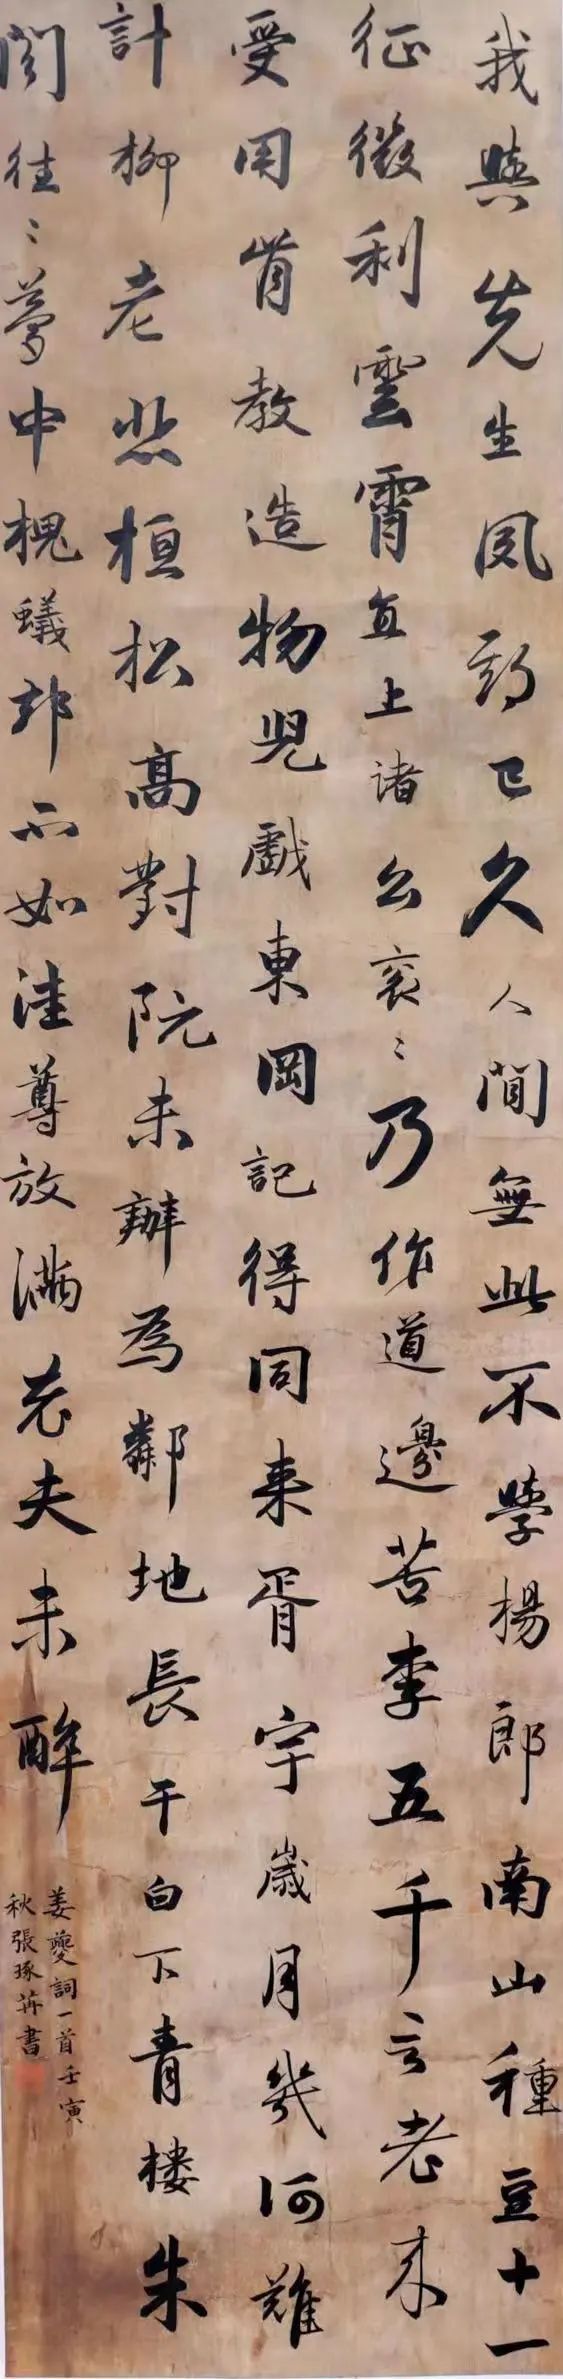 我與先生夙期已久人間無此不學楊郎南山種豆十一
征微利雲霄直上諸公袞〻乃作道邊苦李五千言老來
受用肯教造物兒戲東岡記得同來胥宇歲月幾何難
計柳老悲桓松高對阮未辦為鄰地長干白下青樓朱
閣往〻夢中槐蟻却不如洼尊放滿老夫未醉
姜夔詞一首壬寅
秋張琢苒書